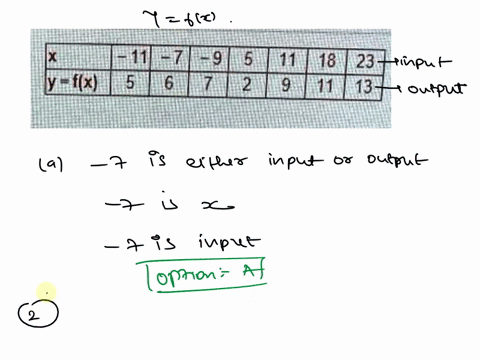 Y = f(x).
x -11 -7 -9 5 11 18 23 → input
y = f(x) 5 6 7 2 9 11 13 → output
(a) -7 is either input or output
-7 is x
-7 is input
option:- A
2